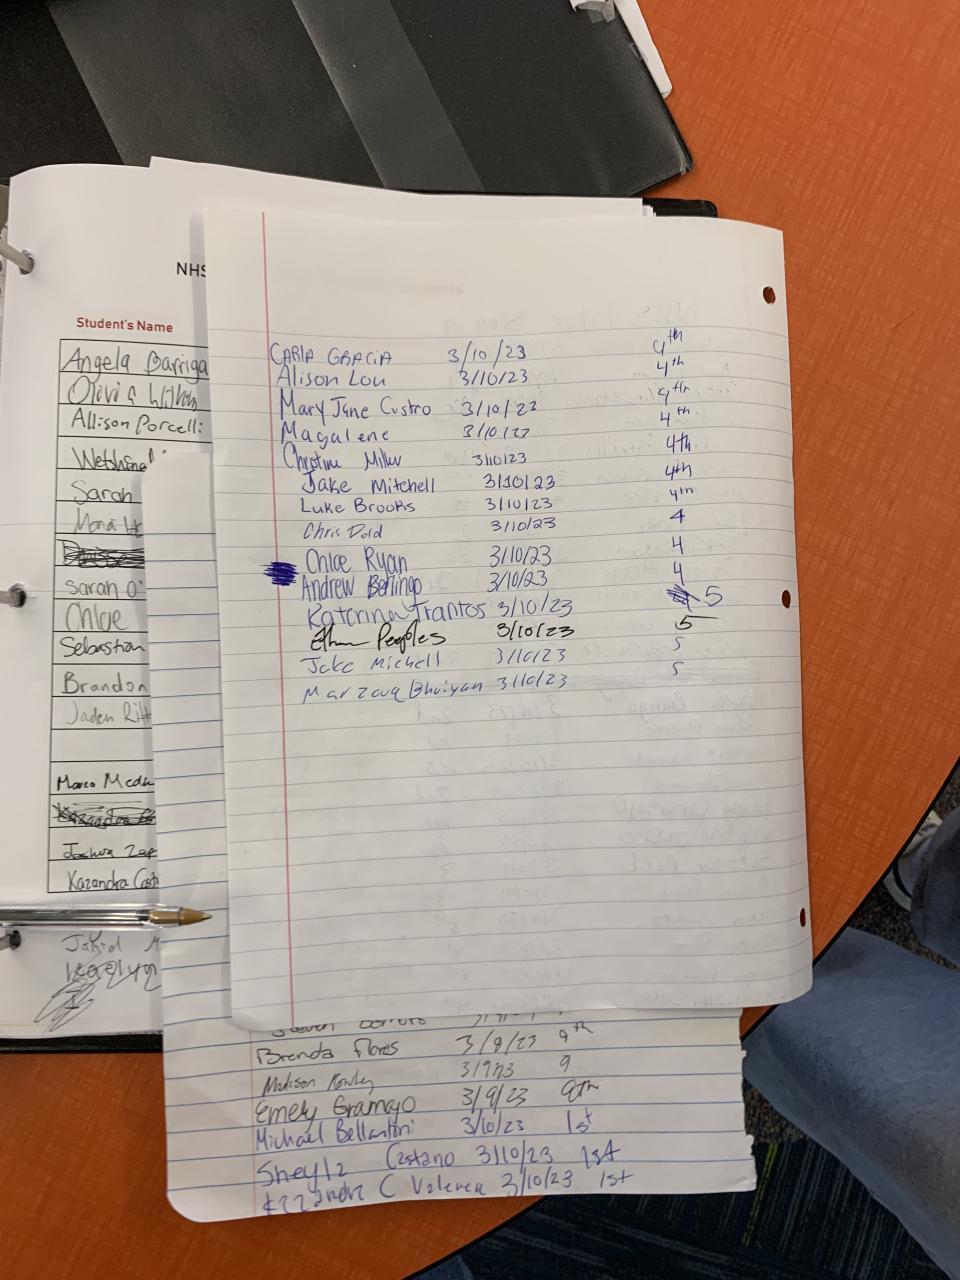 NHS
Student's Name
Angela Barriga
Olivia
Allison Porcelli
Sarah
Mona
Sarah O'
Chloe
Sebastian
Brandon
Jaden Ritt
Marco Medi
Kazandra
Joshua Zap
Kazandra Cast
CARLA GRACIA 3/10/23 4th
Alison Lou 3/10/23 4th
Mary Jane Custro 3/10/23 4th
Magalene 3/10/23 4th
Christine Miller 3/10/23 4th
Jake Mitchell 3/10/23 4th
Luke Brooks 3/10/23 4th
Chris Dold 3/10/23 4
Chloe Ryan 3/10/23 4
Andrew Berlingo 3/10/23 4
Katerina Frantos 3/10/23 5
Ethan Peoples 3/10/23 5
Jake Michell 3/10/23 5
Marzouq Bhuiyan 3/10/23 5
Steven
Brenda Flores 3/8/23 9th
Madison Rowley 3/9/23 9
Emely Gramajo 3/9/23 9th
Michael Bellantoni 3/10/23 1st
Sheyla Castano 3/10/23 1st
Kazandra C Valencia 3/10/23 1st